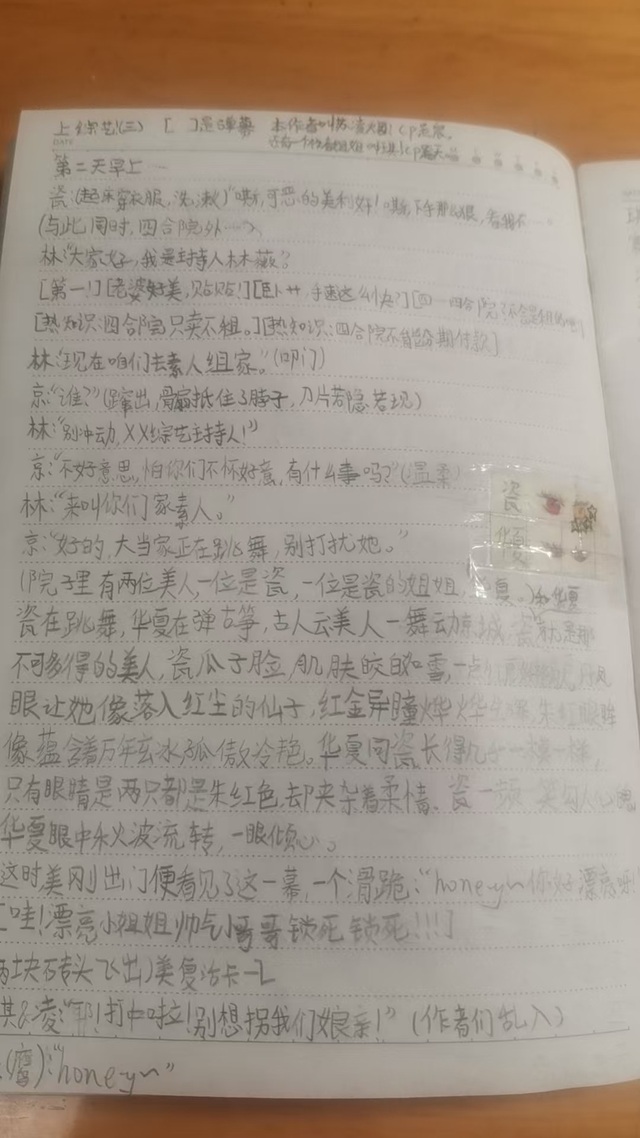 上综艺(三) [ ]是弹幕 本作者叫凌
DATE 还有一个作者
第二天早上…
瓷:(起床穿衣服,洗漱)"嘶,可恶的美利奸!嘶,下手那么狠,看我不…
(与此同时,四合院外…),
林:"大家好,我是主持人林薇?
[第一!][老婆好美,贴贴!][卧艹,手速这么快?][四…四合院?不会是租的吧]
[热知识:四合院只卖不租。][热知识:四合院不能分期付款]
林:"现在咱们去素人组家。"(叩门)
京:"谁?"(蹿出,骨扇抵住了脖子,刀片若隐若现)
林:"别冲动,XX综艺主持人!"
京:"不好意思,怕你们不怀好意,有什么事吗?"(温柔)
林:"来叫你们家素人。"
京:"好的,大当家正在跳舞,别打扰她。"
瓷
华夏
(院子里有两位美人,一位是瓷,一位是瓷的姐姐,华夏。)和华夏
瓷在跳舞,华夏在弹古筝,古人云美人一舞动京城,瓷就是那
不可多得的美人,瓷瓜子脸,肌肤皎白如雪,一点
眼让她像落入红尘的仙子,红金异瞳烨烨生辉,朱红眼眸
像蕴含着万年玄冰孤傲冷艳。华夏同瓷长得几乎一模一样,
只有眼睛是两只都是朱红色,却夹杂着柔情、瓷一颦一笑勾人心魄
华夏眼中水火波流转,一眼倾心。
这时美刚出门便看见了这一幕,一个滑跪:"honey~你好漂亮呀!
[哇!漂亮小姐姐帅气小哥哥锁死锁死!!!]
两块砖头飞出)美复活卡-1
淇&凌:"耶!打中啦!别想拐我们娘亲!"(作者们乱入)
(鹰):"honey~"